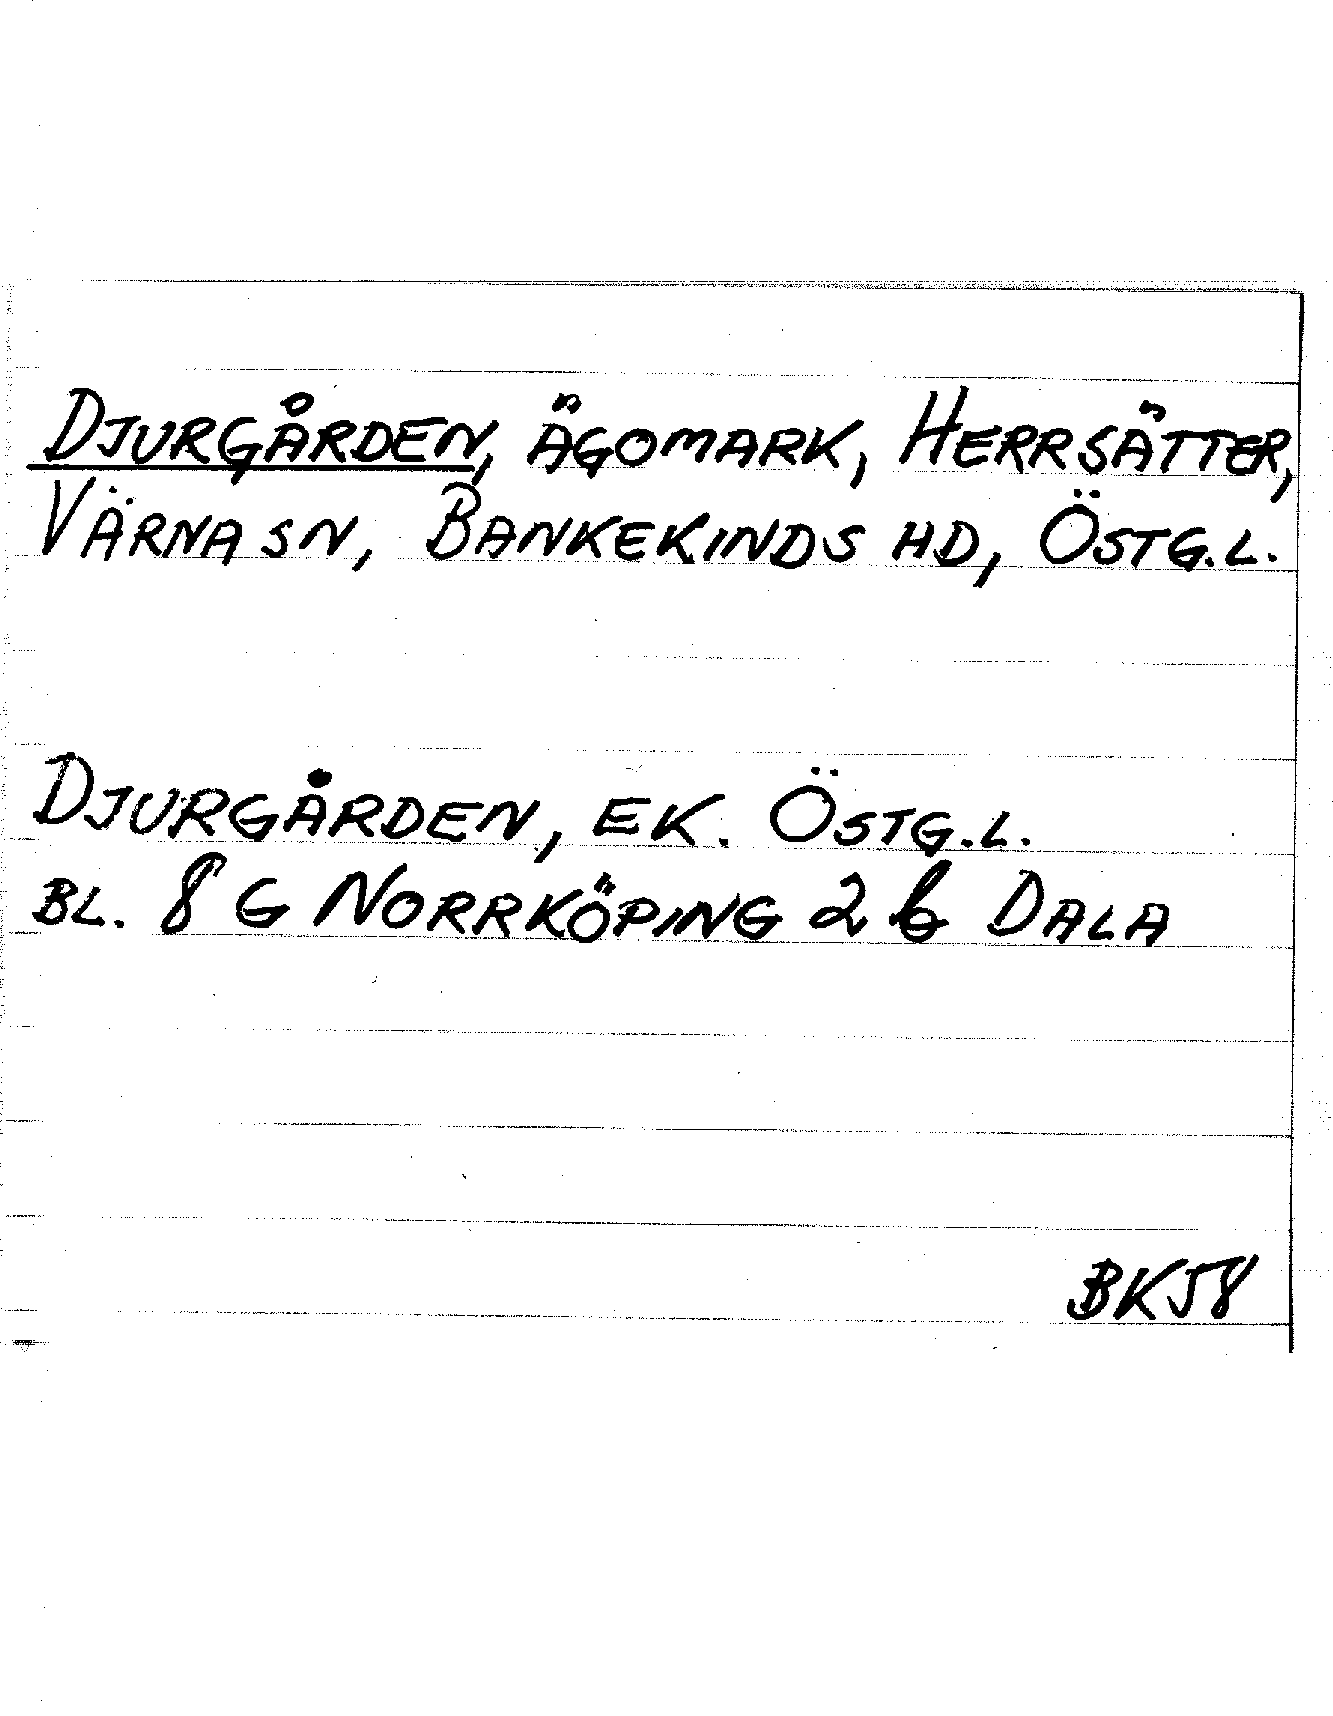 DJURGÅRDEN, ÄGOMARK, HERRSÄTTER,
VÄRNA SN, BANKEKINDS HD, ÖSTG.L.
DJURGÅRDEN, EK. ÖSTG.L.
BL. 8 G NORRKÖPING 2 b DALA
BK58